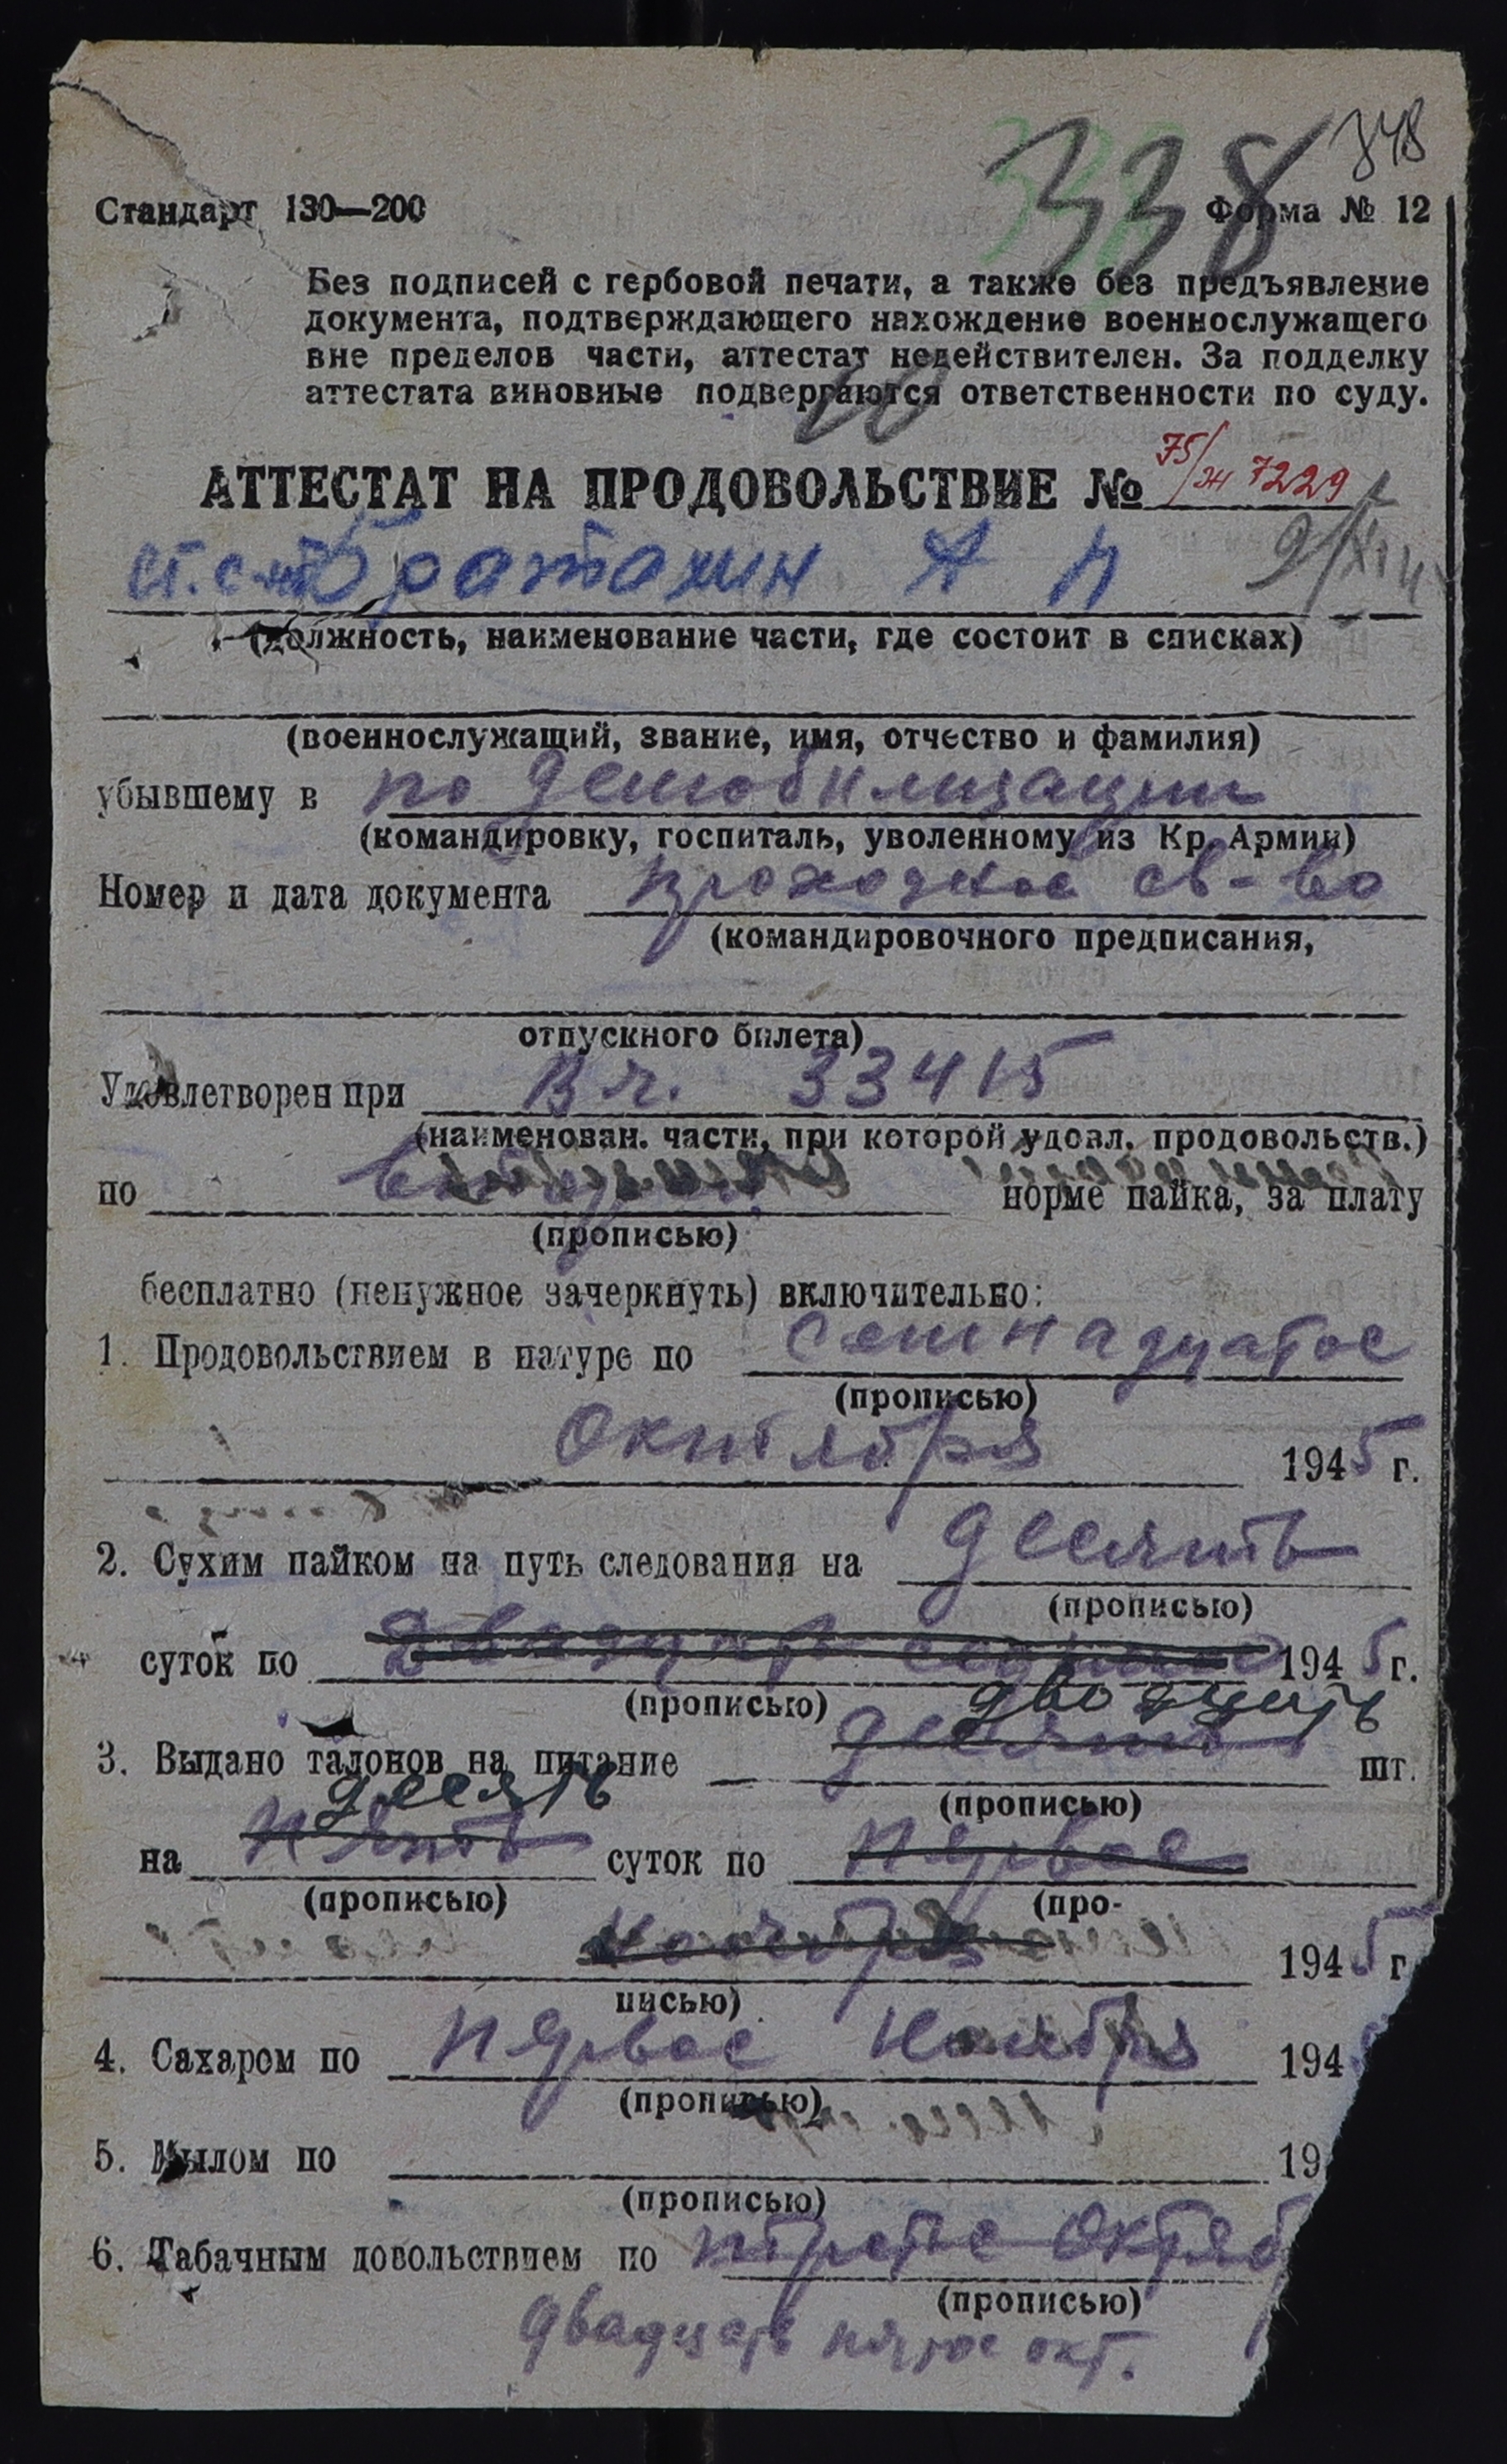 338 348
Стандарт 130—200 Форма № 12
Без подписей с гербовой печати, а также без предъявление
документа, подтверждающего нахождение военнослужащего
вне пределов части, аттестат недействителен. За подделку
аттестата виновные подвергаются ответственности по суду.
АТТЕСТАТ НА ПРОДОВОЛЬСТВИЕ № 75/ж 7229
ст. с-нт А П
(должность, наименование части, где состоит в списках)
(военнослужащий, звание, имя, отчество и фамилия)
убывшему в по демобилизации
(командировку, госпиталь, уволенному из Кр. Армии)
Номер и дата документа проходное св-во
(командировочного предписания,
отпускного билета)
Удовлетворен при В ч. 33415
(наименован. части, при которой удовл. продовольств.)
по норме пайка, за плату
(прописью)
бесплатно (ненужное зачеркнуть) включительно:
1. Продовольствием в натуре по семнадцатое
(прописью)
Октября 1945 г.
2. Сухим пайком на путь следования на десять
(прописью)
суток по 1945 г.
(прописью) двадцать
3. Выдано талонов на питание десять шт.
десять (прописью)
на пять суток по первое
(прописью) (про-
ноября 1945 г
писью)
4. Сахаром по первое ноября 194
(прописью)
5. Мылом по 19
(прописью)
6. Табачным довольствием по третье Октяб
(прописью)
двадцать пятое окт.